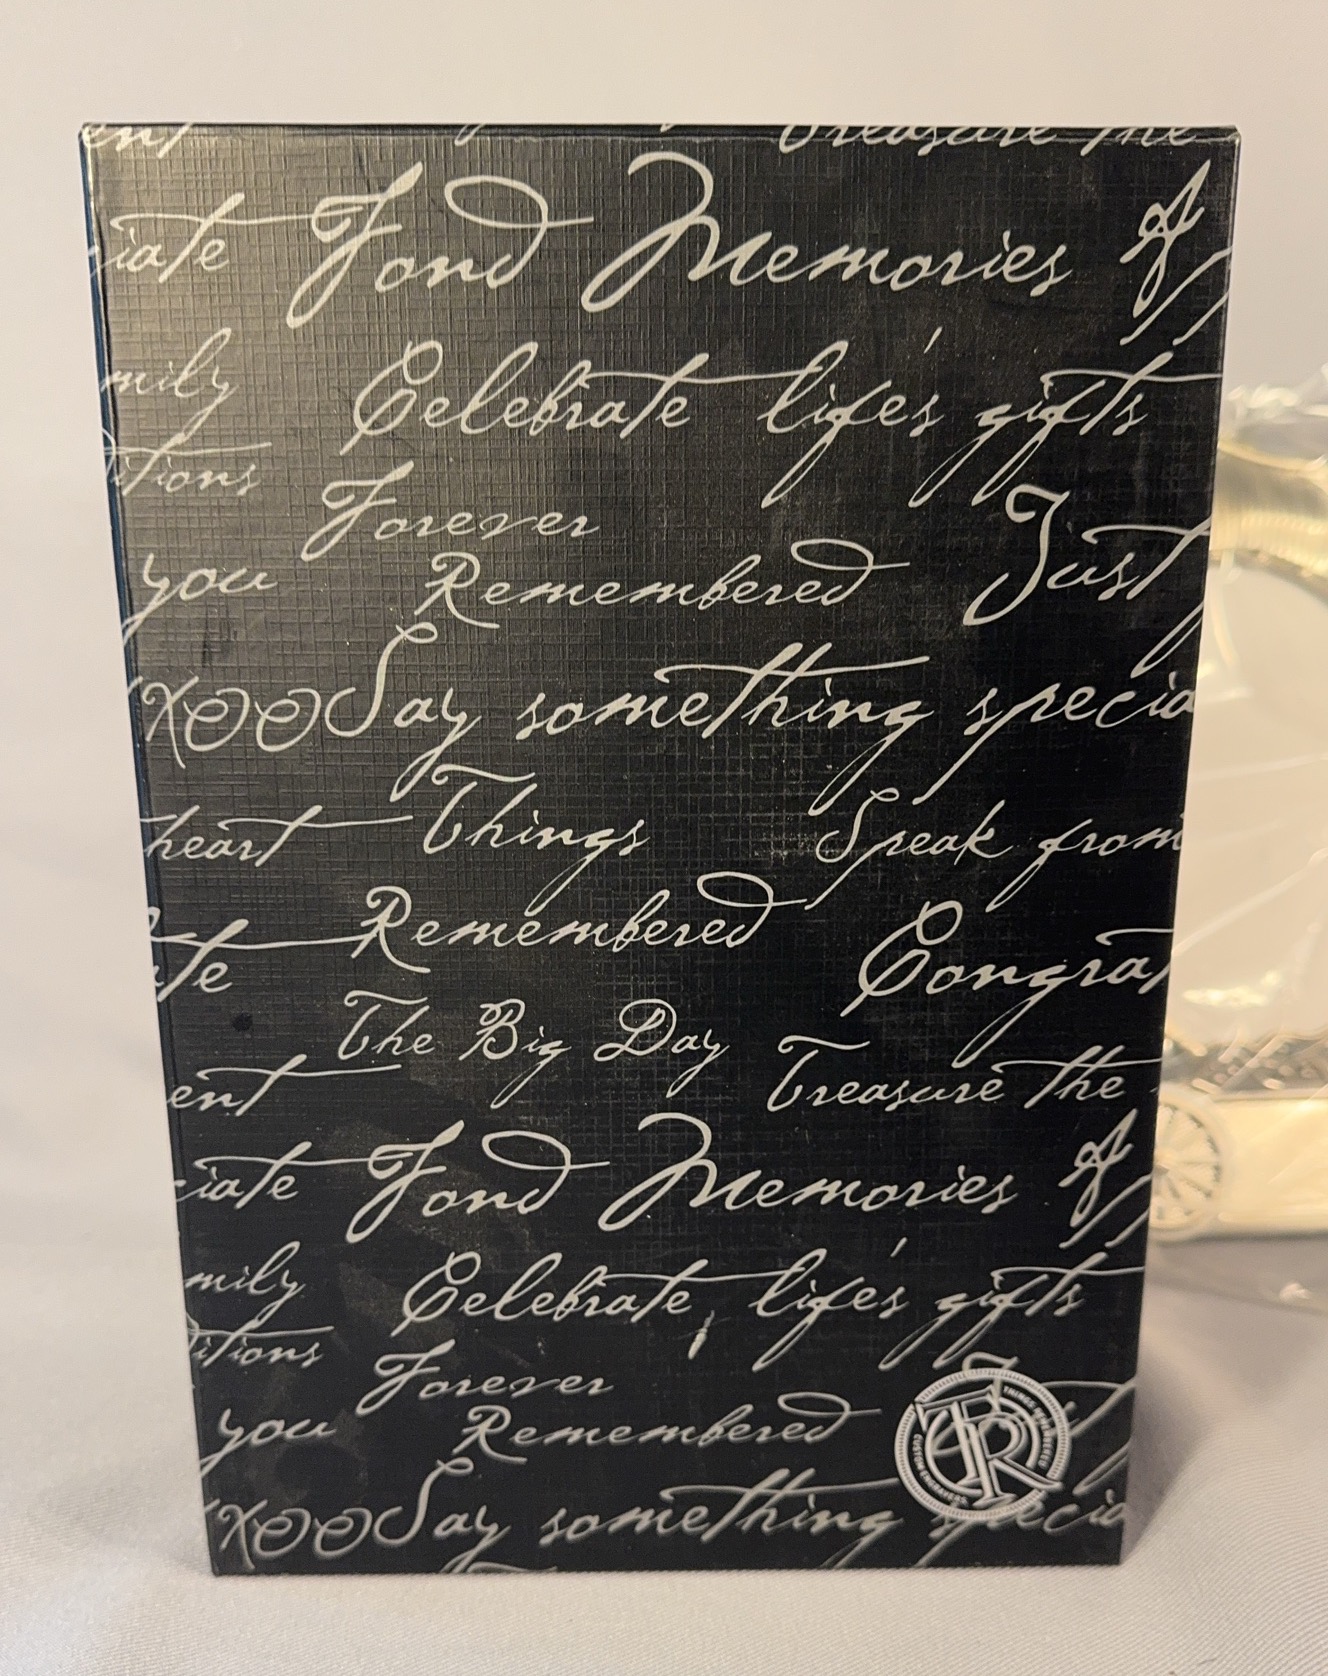 ent Treasure the
ciate Fond Memories of
mily Celebrate life's gifts
ditions Forever
you Remembered Just
XOO Say something specia
heart Things Speak from
te Remembered Congrat
The Big Day
ent Treasure the
ciate Fond Memories of
mily Celebrate life's gifts
ditions Forever
you Remembered
THINGS REMEMBERED
CUSTOM ENGRAVERS
TR
XOO Say something specia